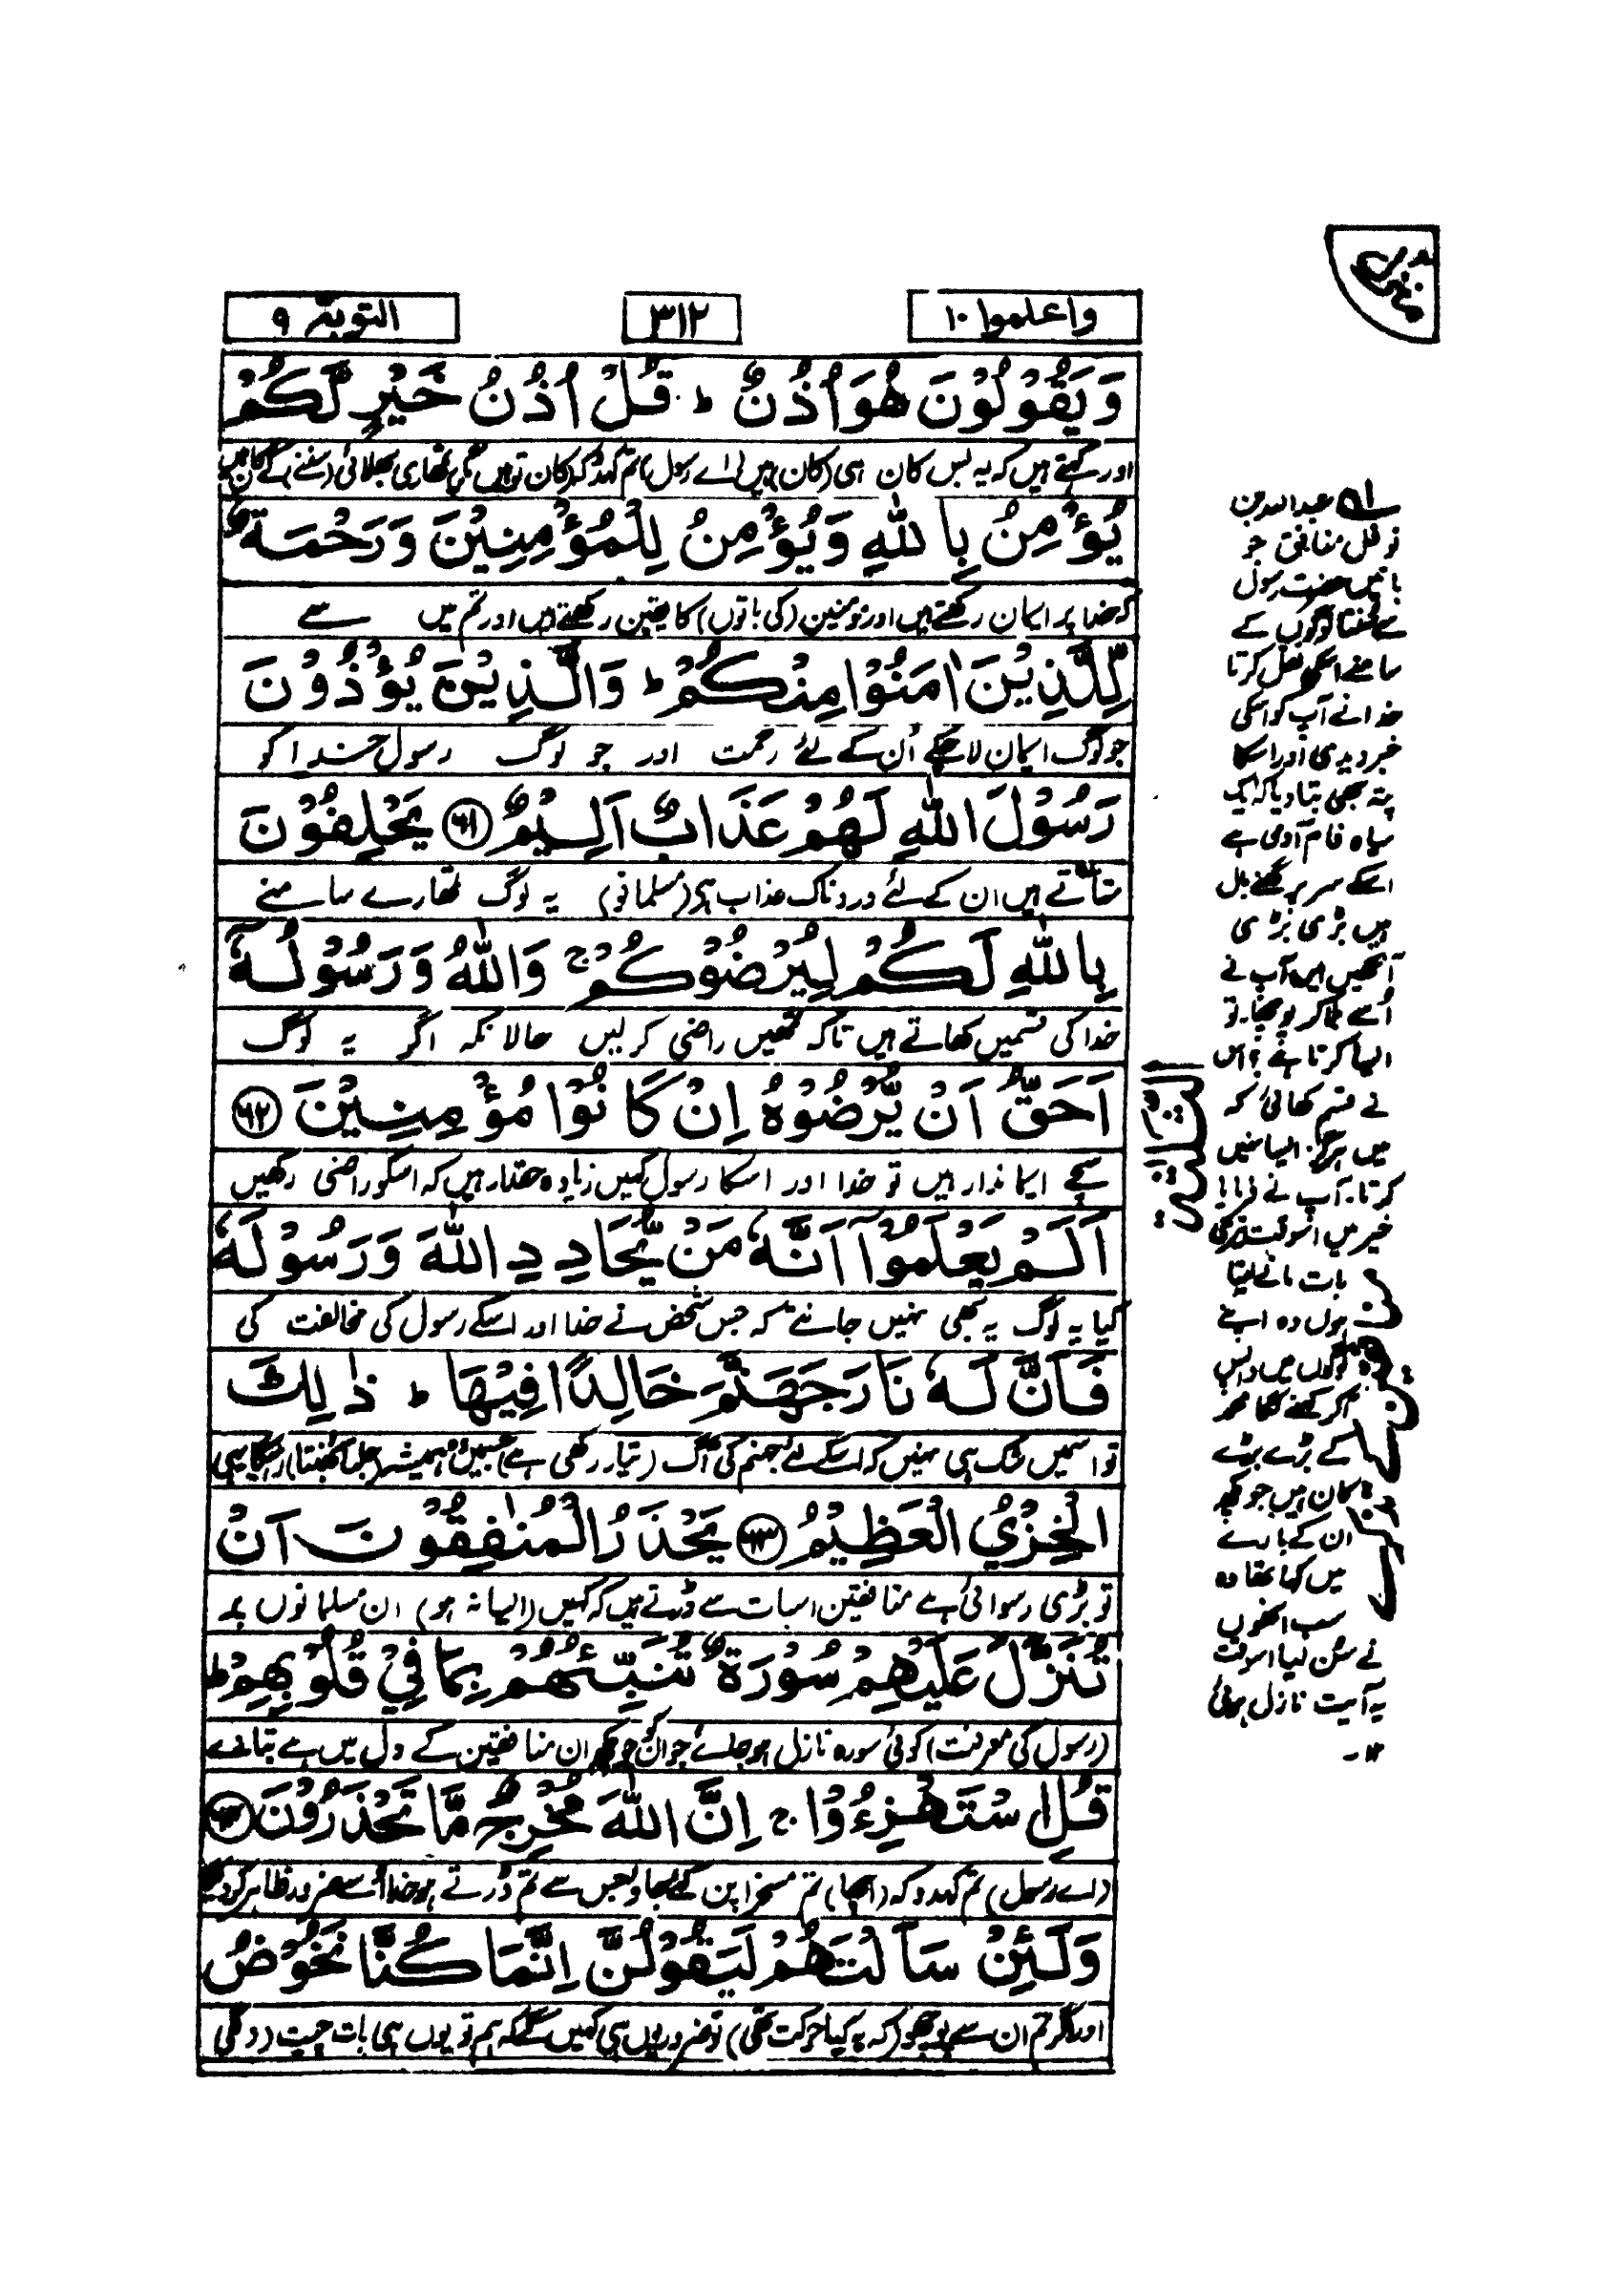 واعلموا ۱۰
۳۱۲
التوبة ۹
وَيَقُوْلُوْنَ هُوَ اُذُنٌ ؕ قُلْ اُذُنُ خَيْرٍ لَّكُمْ
اور کہتے ہیں کہ یہ بس کان ہی (کان) ہیں (اے رسول) تم کہدو کہ (کان تو ہیں مگر) تمھاری بھلائی (سننے) کے کان ہیں
يُؤْمِنُ بِاللّٰهِ وَيُؤْمِنُ لِلْمُؤْمِنِيْنَ وَرَحْمَةٌ
کہ خدا پر ایمان رکھتے ہیں اور مومنین (کی باتوں) کا یقین رکھتے ہیں اور تم میں سے
لِّلَّذِيْنَ اٰمَنُوْا مِنْكُمْ ؕ وَالَّذِيْنَ يُؤْذُوْنَ
جو لوگ ایمان لا چکے اُن کے لئے رحمت اور جو لوگ رسول خدا کو
رَسُوْلَ اللّٰهِ لَهُمْ عَذَابٌ اَلِيْمٌ ﴿۶۱﴾ يَحْلِفُوْنَ
ستاتے ہیں ان کے لئے دردناک عذاب ہے (مسلمانو) یہ لوگ تمھارے سامنے
بِاللّٰهِ لَكُمْ لِيُرْضُوْكُمْ ۚ وَاللّٰهُ وَرَسُوْلُهٗٓ
خدا کی قسمیں کھاتے ہیں تاکہ تمھیں راضی کر لیں حالانکہ اگر یہ لوگ
اَحَقُّ اَنْ يُّرْضُوْهُ اِنْ كَانُوْا مُؤْمِنِيْنَ ﴿۶۲﴾
سچے ایماندار ہیں تو خدا اور اسکا رسول کہیں زیادہ حقدار ہیں کہ اسکو راضی رکھیں
اَلَمْ يَعْلَمُوْٓا اَنَّهٗ مَنْ يُّحَادِدِ اللّٰهَ وَرَسُوْلَهٗ
کیا یہ لوگ یہ بھی نہیں جانتے کہ جس شخص نے خدا اور اسکے رسول کی مخالفت کی
فَاَنَّ لَهٗ نَارَ جَهَنَّمَ خَالِدًا فِيْهَا ؕ ذٰلِكَ
تو اسمیں شک ہی نہیں کہ اسکے لئے جہنم کی آگ (تیار رکھی ہے) جسمیں وہ ہمیشہ (جلتا بھنتا) رہیگا یہی
الْخِزْيُ الْعَظِيْمُ ﴿۶۳﴾ يَحْذَرُ الْمُنٰفِقُوْنَ اَنْ
تو بڑی رسوائی ہے منافقین اسبات سے ڈرتے ہیں کہ کہیں (ایسا نہ ہو) ان مسلمانوں پر
تُنَزَّلَ عَلَيْهِمْ سُوْرَةٌ تُنَبِّئُهُمْ بِمَا فِيْ قُلُوْبِهِمْ ؕ
(رسول کی معرفت) کوئی سورہ نازل ہو جائے جو ان کو جو کچھ ان منافقین کے دل میں ہے بتا دے
قُلِ اسْتَهْزِءُوْا ۚ اِنَّ اللّٰهَ مُخْرِجٌ مَّا تَحْذَرُوْنَ ﴿۶۴﴾
(اے رسول) تم کہدو کہ (اچھا) تم مسخراپن کئے جاؤ جس سے تم ڈرتے ہو خدا اُسے ضرور ظاہر کر دیگا
وَلَئِنْ سَاَلْتَهُمْ لَيَقُوْلُنَّ اِنَّمَا كُنَّا نَخُوْضُ
اور اگر تم ان سے پوچھو (کہ یہ کیا حرکت تھی) تو ضرور یوں ہی کہیں گے کہ ہم تو یوں ہی بات چیت (دل لگی
عبداللہ بن
نوفل منافق جو
باتیں حضرت رسول
سے سنتا لوگوں کے
سامنے اسکو نقل کرتا
خدا نے آپ کو اسکی
خبر دیدی اور اسکا
پتہ بھی بتا دیا کہ ایک
سیاہ فام آدمی ہے
اسکے سر پر گھنے بال
ہیں بڑی بڑی
آنکھیں ہیں آپ نے
اُسے بلا کر پوچھا۔ تو
ایسا کرتا ہے؟ اس
نے قسم کھائی کہ
میں ہرگز ایسا نہیں
کرتا۔ آپ نے فرمایا
خیر میں اسوقت تیری
بات مانے لیتا
ہوں وہ اپنے
لوگوں میں واپس
آکر کہنے لگا محمد
کے بڑے بڑے
کان ہیں جو کچھ
ان کے بارے
میں کہا تھا وہ
سب انھوں
نے سن لیا اسوقت
یہ آیت نازل ہوئی
۱۲-